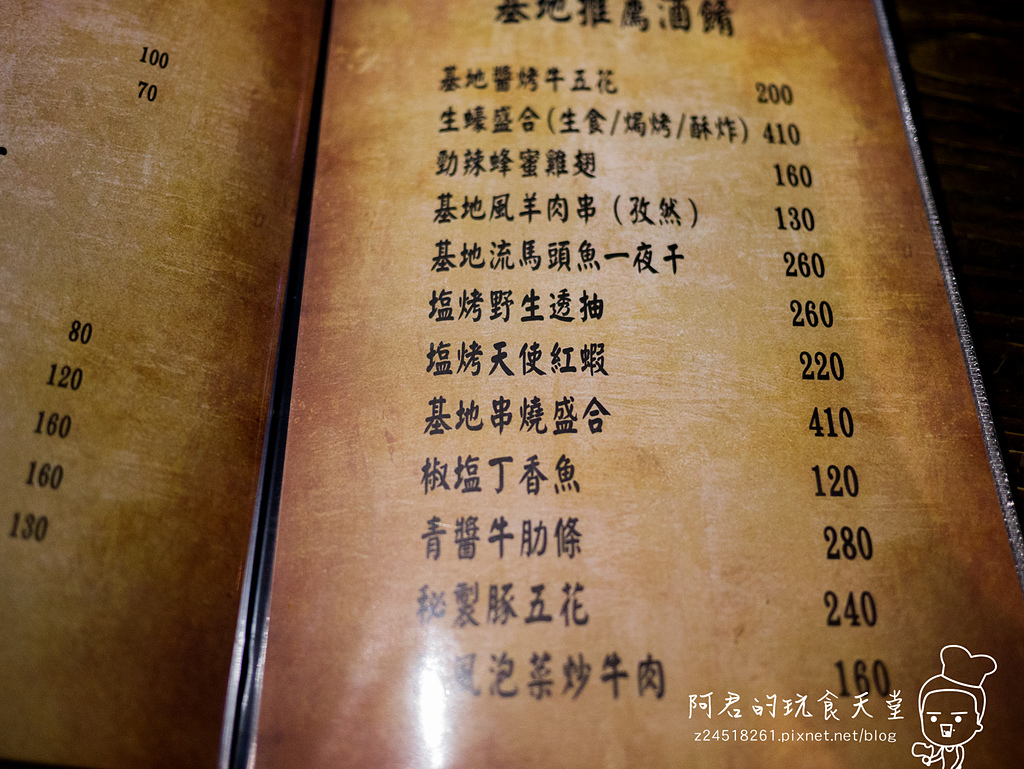 100
70
80
120
160
160
130
基地推薦酒餚
基地醬烤牛五花 200
生蠔盛合(生食/焗烤/酥炸) 410
勁辣蜂蜜雞翅 160
基地風羊肉串(孜然) 130
基地流馬頭魚一夜干 260
塩烤野生透抽 260
塩烤天使紅蝦 220
基地串燒盛合 410
椒塩丁香魚 120
青醬牛肋條 280
秘製豚五花 240
風泡菜炒牛肉 160
阿君的玩食天堂
z24518261.pixnet.net/blog